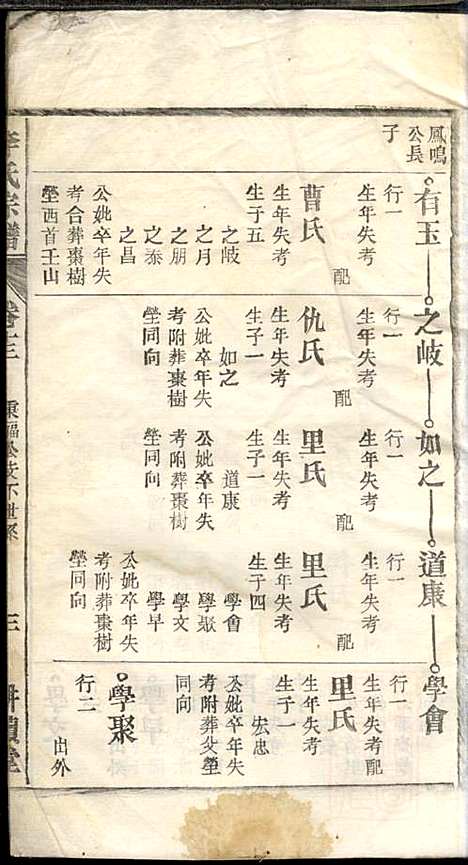 鳳鳴
公長
子
有玉
行一
生年失考
配
曹氏
生年失考
生子五
之岐
之月
之朋
之泰
之昌
公妣卒年失
考合葬棗樹
塋西首壬山
之岐
行一
生年失考
配
仇氏
生年失考
生子一
如之
公妣卒年失
考附葬棗樹
塋同向
如之
行一
生年失考
配
里氏
生年失考
生子一
道康
公妣卒年失
考附葬棗樹
塋同向
道康
行一
生年失考
配
里氏
生年失考
生子四
學會
學聚
學文
學早
公妣卒年失
考附葬棗樹
塋同向
學會
行一
生年失考配
里氏
生年失考
生子一
宏忠
公妣卒年失
考附葬父塋
同向
學聚
行二
出外
氏宗譜
三